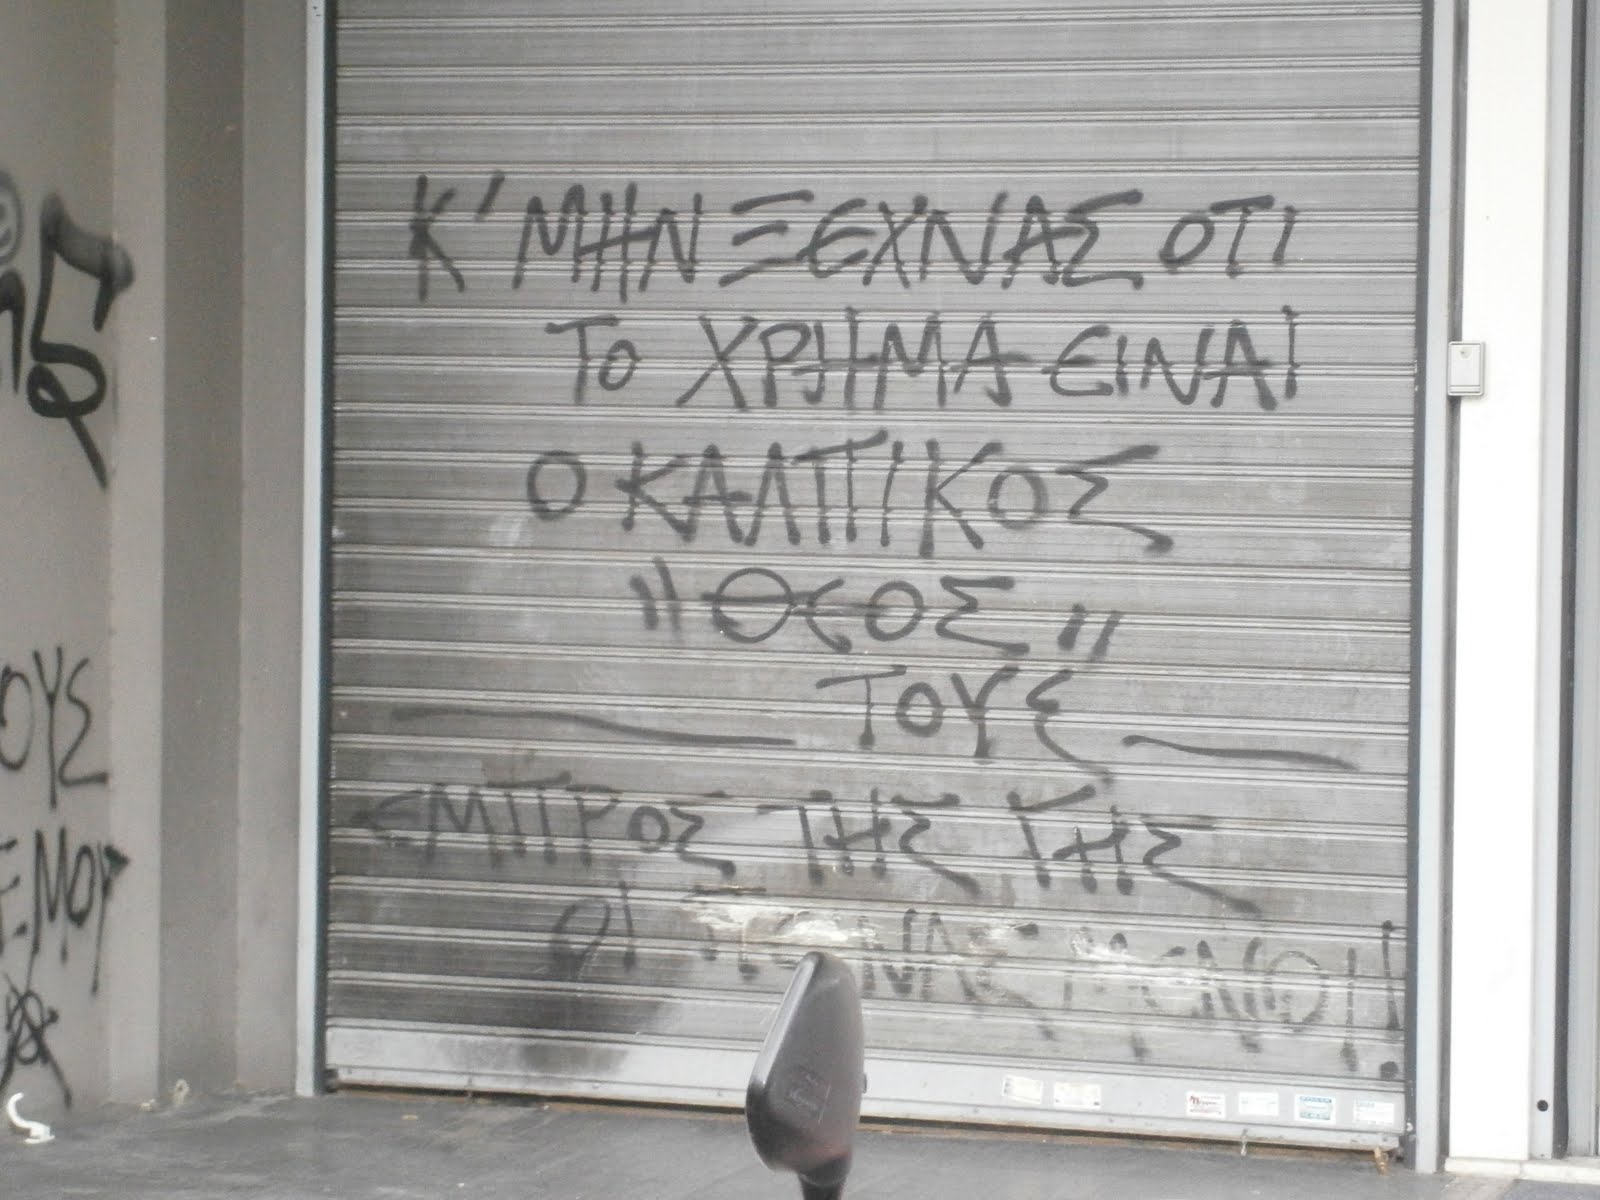 Κ' ΜΗΝ ΞΕΧΝΑΣ ΟΤΙ
ΤΟ ΧΡΗΜΑ ΕΙΝΑΙ
Ο ΚΑΛΠΙΚΟΣ
"ΘΕΟΣ"
ΤΟΥΣ
ΕΜΠΡΟΣ ΤΗΣ ΓΗΣ
ΟΙ ΚΟΛΑΣΜΕΝΟΙ!
ΟΥΣ
ΕΜΟΥ